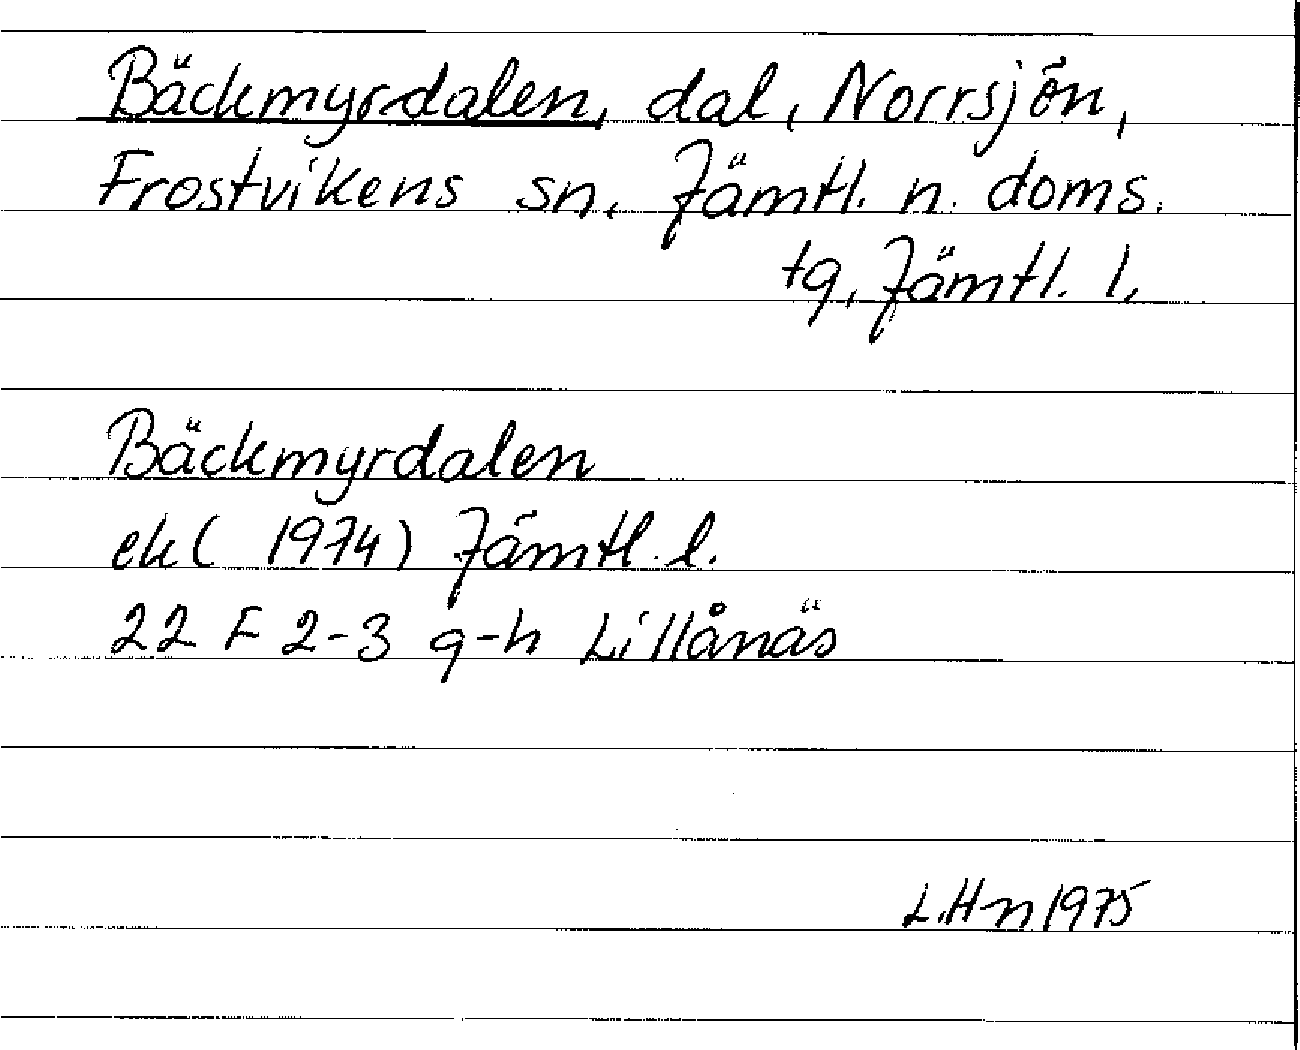 Bäckmyrdalen, dal, Norrsjön,
Frostvikens sn, Jämtl. n. doms.
tg, Jämtl. l.
Bäckmyrdalen
ek ( 1974) Jämtl. l.
22 F 2-3 g-h Lillånäs
L.Hn 1975